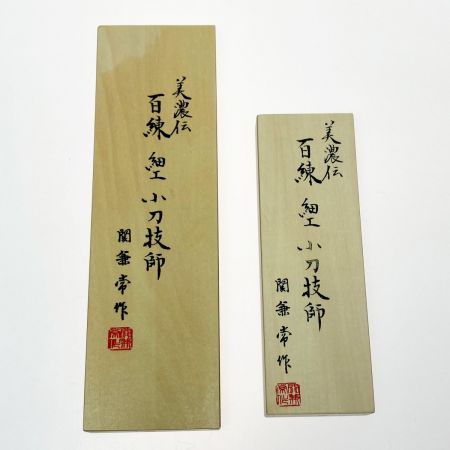 美濃伝
百練 細工 小刀技師
関兼常作
美濃伝
百練 細工 小刀技師
関兼常作